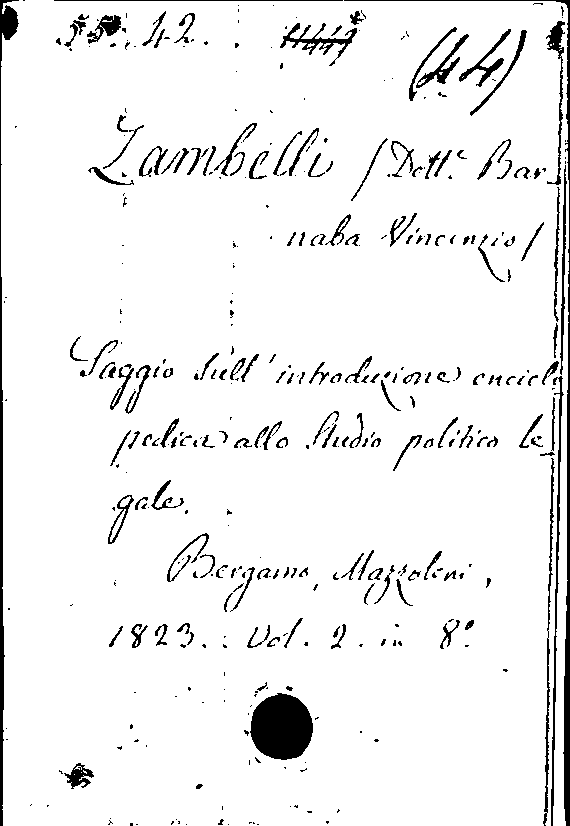 55. 42.
(44)
Zambelli /Dott.e Bar-
naba Vincenzio/
Saggio sull' introduzione enciclo
pedica allo Studio politico le-
gale.
Bergamo, Mazzoleni,
1823. Vol. 2. in 8.o